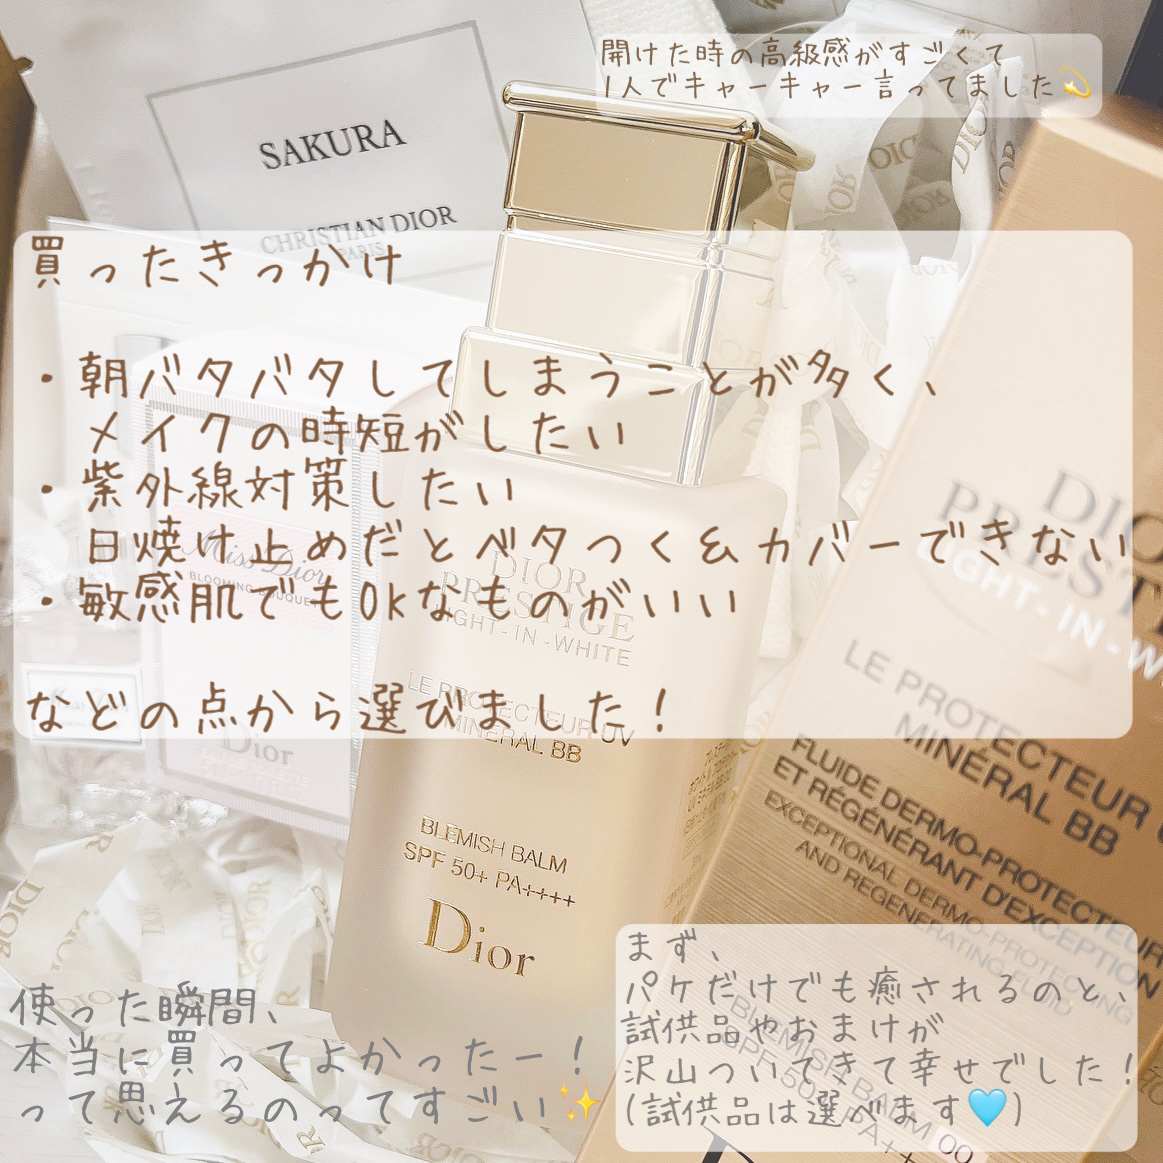 開けた時の高級感がすごくて
1人でキャーキャー言ってました💫
SAKURA
CHRISTIAN DIOR
PARIS
買ったきっかけ
・朝バタバタしてしまうことが多く、
メイクの時短がしたい
・紫外線対策したい
日焼け止めだとベタつく&カバーできない
・敏感肌でもOkなものがいい
などの点から選びました！
Miss Dior
BLOOMING BOUQUET
Dior
DIOR
PRESTIGE
LIGHT-IN-WHITE
LE PROTECTEUR UV
MINÉRAL BB
BLEMISH BALM
SPF 50+ PA++++
Dior
DIO
PREST
LIGHT-IN-W
LE PROTECTEUR
MINÉRAL BB
FLUIDE DERMO-PROTECTEUR
ET RÉGÉNÉRANT D'EXCEPTION
EXCEPTIONAL DERMO-PROTECTING
AND REGENERATING FLUID
BLEMISH BALM 00
SPF 50+ PA++
使った瞬間、
本当に買ってよかったー！
って思えるのってすごい✨
まず、
パケだけでも癒されるのと、
試供品やおまけが
沢山ついてきて幸せでした！
(試供品は選べます🩵)